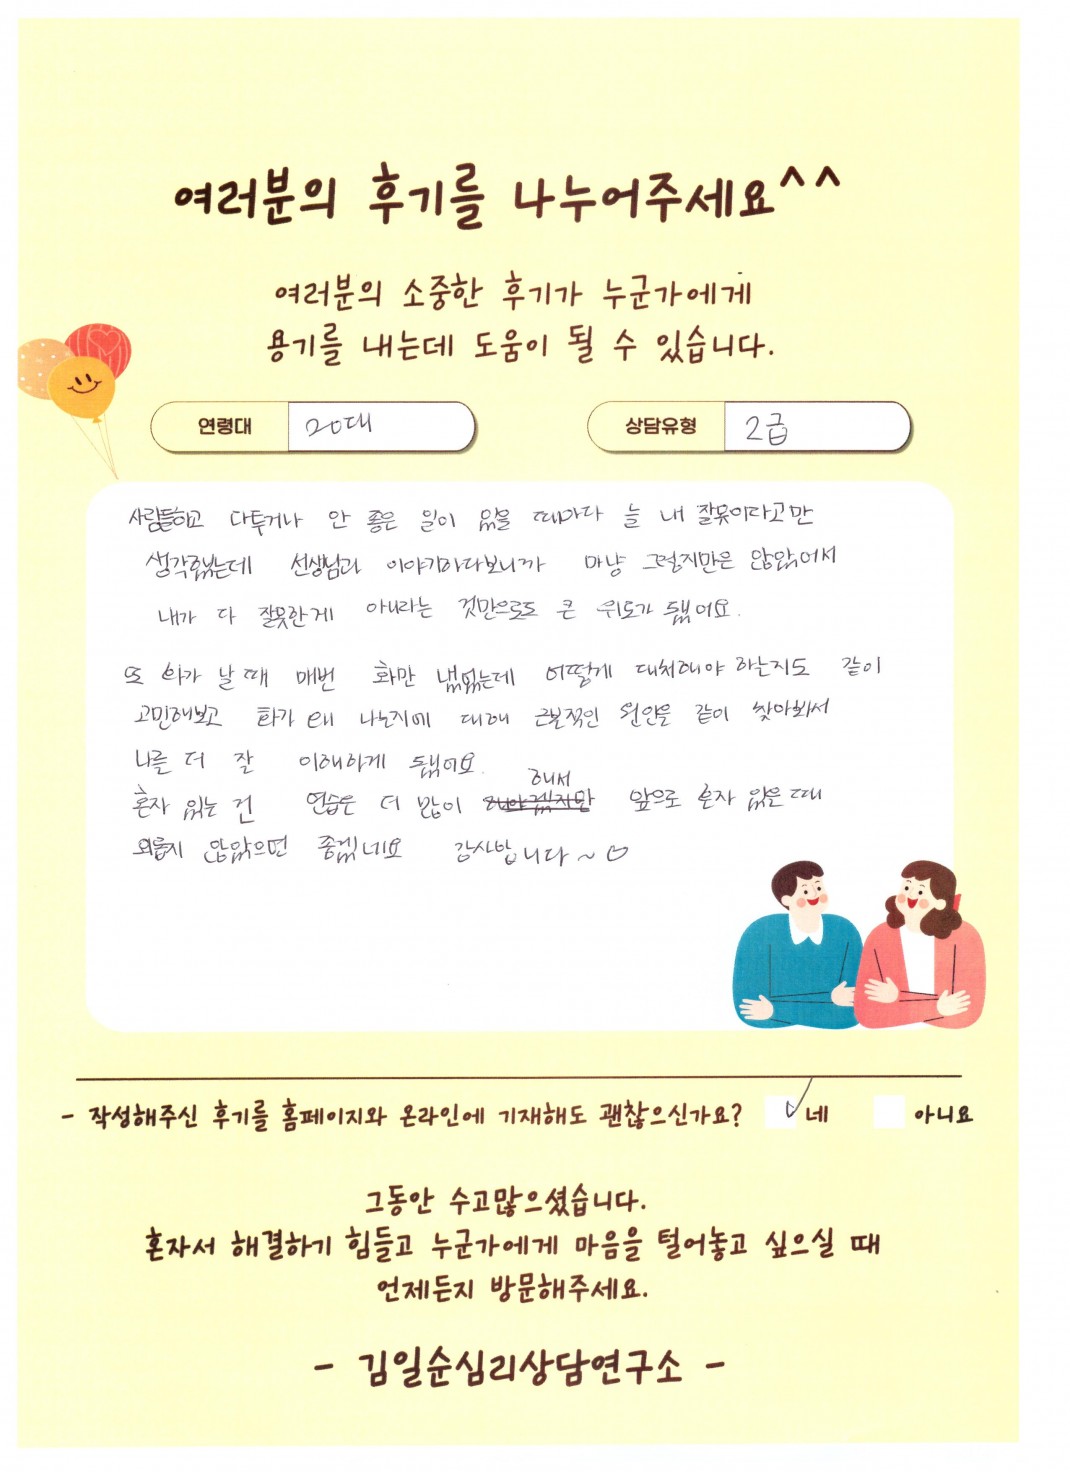 여러분의 후기를 나누어주세요^^
여러분의 소중한 후기가 누군가에게
용기를 내는데 도움이 될 수 있습니다.
연령대 20대 상담유형 2급
사람들하고 다투거나 안 좋은 일이 있을 때마다 늘 내 잘못이라고만
생각했었는데 선생님과 이야기하다보니까 마냥 그렇지만은 않았어서
내가 다 잘못한게 아니라는 것만으로도 큰 위로가 됐어요.
또 화가 날 때 매번 화만 냈었는데 어떻게 대처해야 하는지도 같이
고민해보고 화가 왜 나는지에 대해 근본적인 원인을 같이 찾아봐서
나를 더 잘 이해하게 됐어요.
혼자 있는 건 연습을 더 많이 해서 앞으로 혼자 있을 때
외롭지 않았으면 좋겠네요 감사합니다~♡
- 작성해주신 후기를 홈페이지와 온라인에 기재해도 괜찮으신가요? 네 아니요
그동안 수고많으셨습니다.
혼자서 해결하기 힘들고 누군가에게 마음을 털어놓고 싶으실 때
언제든지 방문해주세요.
- 김일순심리상담연구소 -